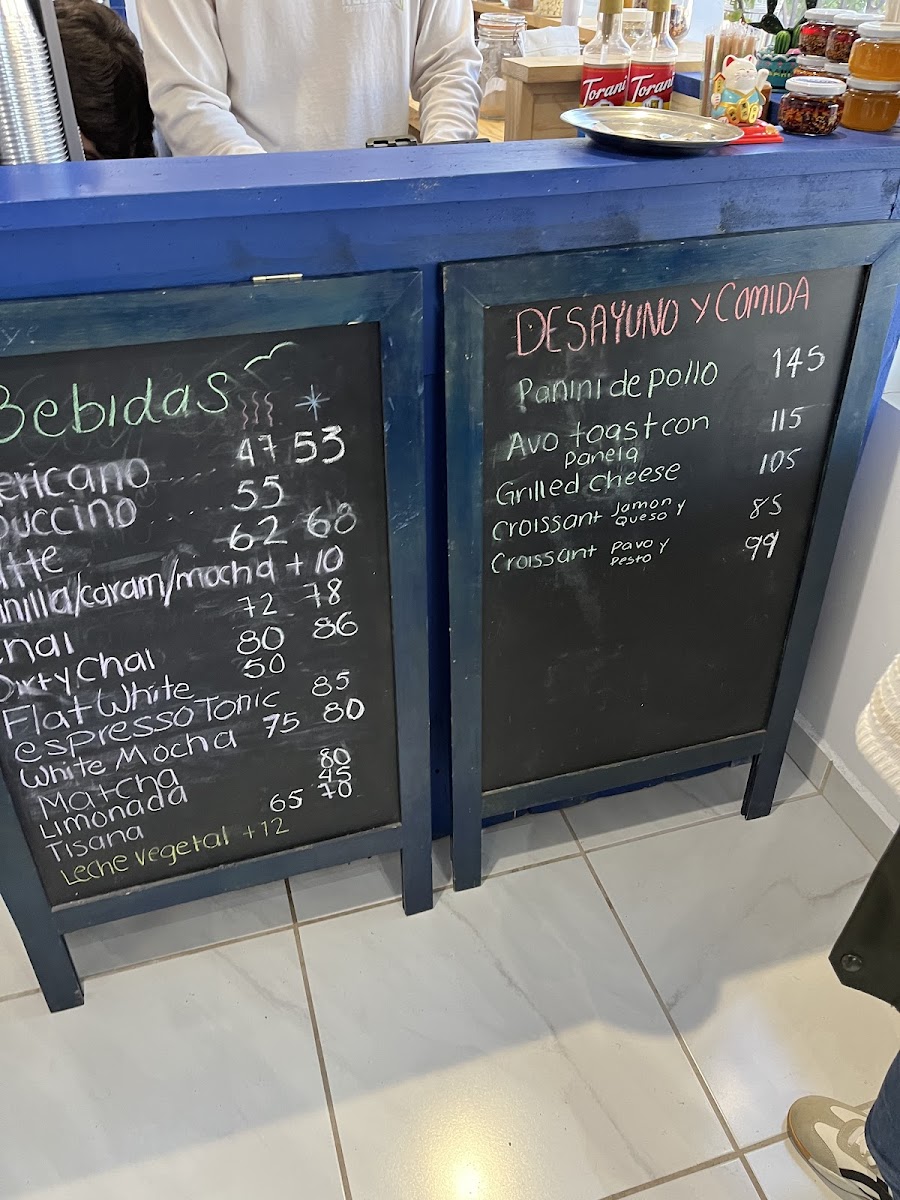 Bebidas
ericano ..... 47 53
puccino ..... 55
tte 62 68
nilla/caram/mocha +10
hai 72 78
Dirty Chai 80 86
Flat White 50
espresso Tonic 85
White Mocha 75 80
Matcha 80
Limonada 45
Tisana 65 70
Leche vegetal +12
DESAYUNO Y COMIDA
Panini de pollo 145
Avo toast con 115
Panela
Grilled cheese 105
Croissant Jamon y
Queso 85
Croissant Pavo y
Pesto 99
Torani
Torani